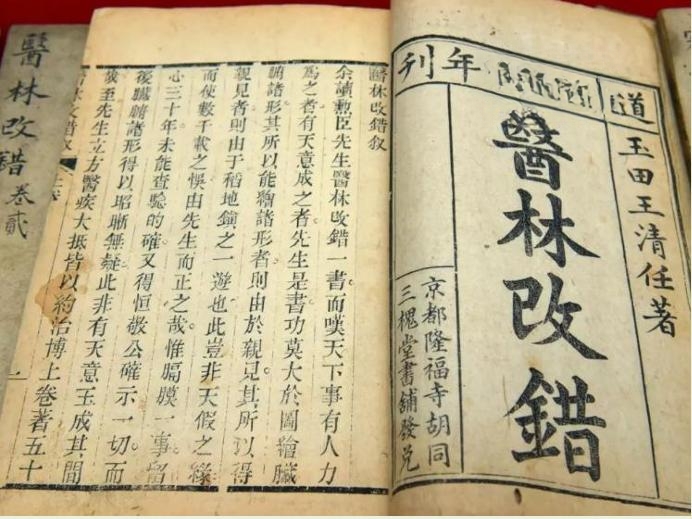 道 年刊
玉田王清任著
醫林改錯
京都隆福寺胡同
三槐堂書舖發兌
醫林改錯叙
余讀勲臣先生醫林改錯一書而嘆天下事有人力
爲之者有天意成之者先生是書功莫大於圖繪臟
腑諸形其所以能繪諸形者則由於親見其所以得
親見者則由于稻地鎮之一遊也此豈非天假之緣
而使數千載之悞由先生而正之哉惟膈膜一事留
心三十年未能查驗的確又得恒敬公確示一切而
後臟腑諸形得以昭晰無疑此非有天意玉成其間
哉至先生立方醫疾大抵皆以約治博上卷著五十
醫林改錯叙 一
醫林改錯 卷貳